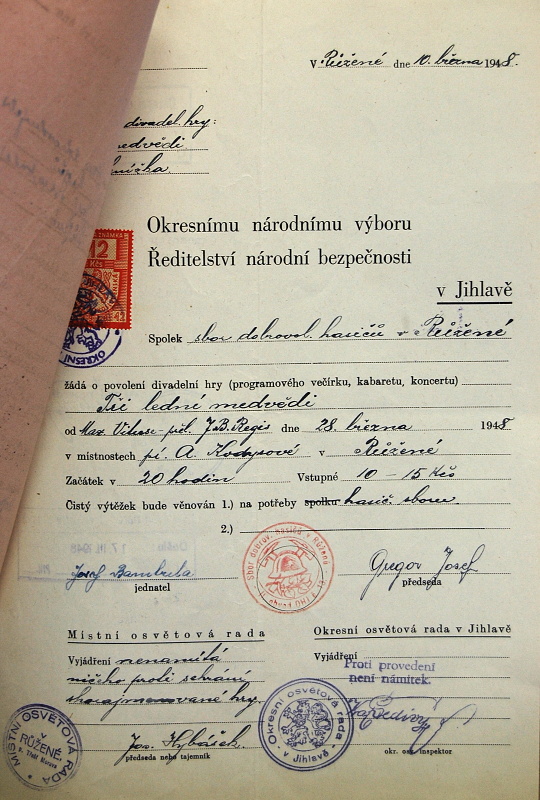 V Růžené dne 10. března 1948.
divadel. hry:
medvědi
Okresnímu národnímu výboru
Ředitelství národní bezpečnosti
v Jihlavě
12
Kčs
Spolek sbor dobrovol. hasičů v Růžené
žádá o povolení divadelní hry (programového večírku, kabaretu, koncertu)
Tři lední medvědi
od Max. Vitrose - přel. J.B. Regis dne 28. března 1948
v místnostech pí. A. v Růžené
Začátek v 20 hodin Vstupné 10 - 15 Kčs
Čistý výtěžek bude věnován 1.) na potřeby spolku hasič. sboru.
2.)
Sbor dobrov. hasičů v Růžené
17 III. 1948
Josef Gregor Josef
jednatel předseda
Místní osvětová rada Okresní osvětová rada v Jihlavě
Vyjádření nenamítá Vyjádření
Proti provedení
není námitek.
ničeho proti sehrání
shora jmenované hry.
MÍSTNÍ OSVĚTOVÁ RADA
V
RŮŽENÉ
Okresní osvětová rada
v Jihlavě
Jos. Hybášek
předseda nebo tajemník okr. osv. inspektor